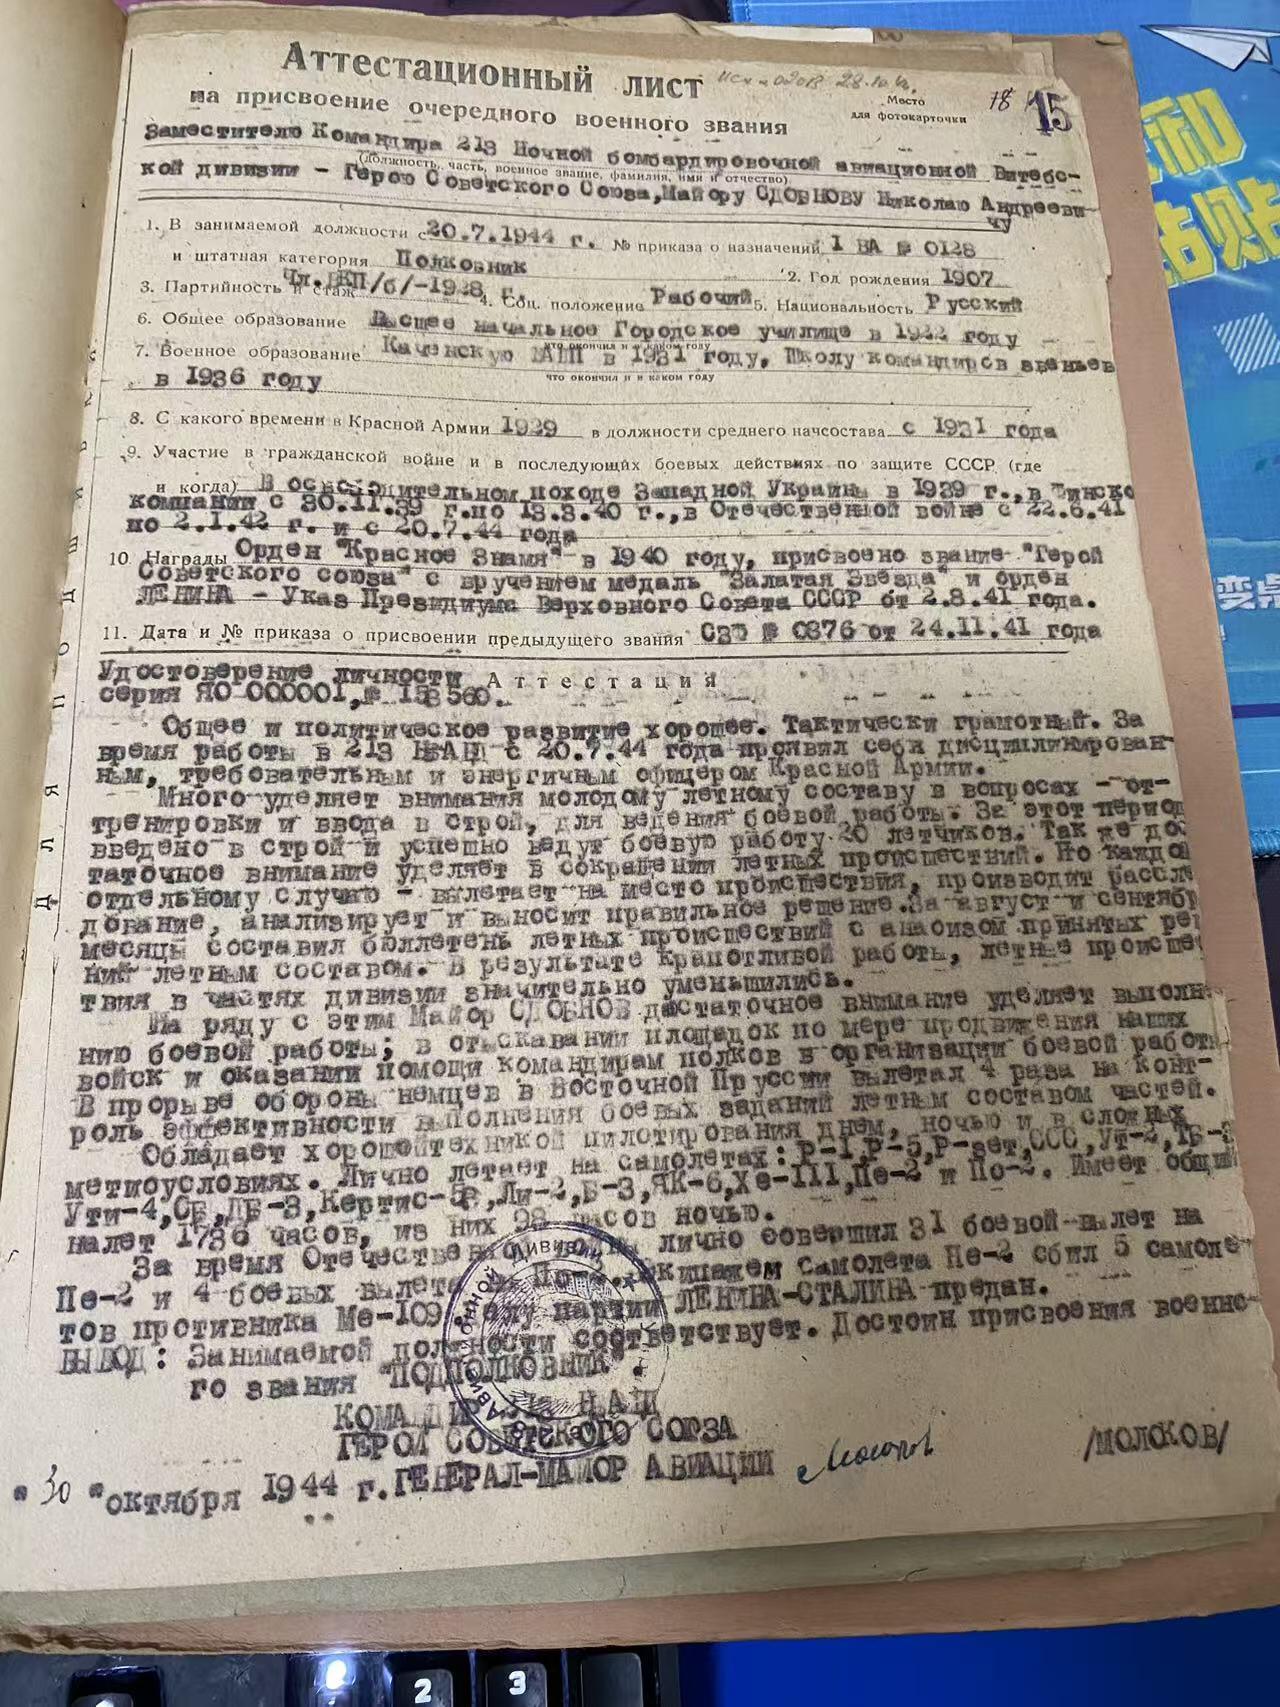 Аттестационный лист
на присвоение очередного военного звания
Место
для фотокарточки
78
15
Заместителю Командира 213 Ночной бомбардировочной авиационной Витебс-
(должность, часть, военное звание, фамилия, имя и отчество)
кой дивизии - Герою Советского Союза, Майору СДОБНОВУ Николаю Андрееви-
чу
1. В занимаемой должности с 20.7.1944 г. № приказа о назначений 1 ВА № 0128
и штатная категория Полковник 2. Год рождения 1907
3. Партийность и стаж Чл. ВКП/б/-1928 г. 4. Соц. положение Рабочий 5. Национальность Русский
6. Общее образование Высшее начальное Городское училище в 1922 году
что окончил и в каком году
7. Военное образование Качинскую ВАШП в 1931 году, Школу командиров звеньев
что окончил и в каком году
в 1936 году
8. С какого времени в Красной Армии 1929 в должности среднего начсостава с 1931 года
9. Участие в гражданской войне и в последующих боевых действиях по защите СССР (где
и когда) В освободительном походе Западной Украины в 1939 г., в Финско
компании с 30.11.39 г. по 13.3.40 г., в Отечественной войне с 22.6.41
по 2.1.42 г. и с 20.7.44 года
10 Награды Орден "Красное Знамя" в 1940 году, присвоено звание "Герой
Советского союза" с вручением медаль "Залатая Звезда" и орден
ЛЕНИНА - Указ Президиума Верховного Совета СССР от 2.8.41 года.
11. Дата и № приказа о присвоении предыдущего звания СЗФ № 0376 от 24.11.41 года
Удостоверение личности Аттестация
серия ЯО 000001, № 158560.
Общее и политическое развитие хорошее. Тактически грамотный. За
время работы в 213 НБАД с 20.7.44 года проявил себя дисциплинирован-
ным, требовательным и энергичным офицером Красной Армии.
Много уделяет внимания молодому летному составу в вопросах - от-
тренировки и ввода в строй, для ведения боевой работы. За этот период
введено в строй и успешно ведут боевую работу 20 летчиков. Так же дос
таточное внимание уделяет в сокращении летных происшествий. По каждо
отдельному случаю - вылетает на место происшествия, производит рассле
дование, анализирует и выносит правильное решение. За август и сентябр
месяцы составил бюллетень летных происшествий с анаоизом принятых ре
ний летным составом. В результате крапотливой работы, летные происше
твия в частях дивизии значительно уменьшились.
На ряду с этим Майор СДОБНОВ достаточное внимание уделяет выполн
нию боевой работы; в отыскавании площадок по мере продвижения наших
войск и оказании помощи командирам полков в организации боевой работы
В прорыве обороны немцев в Восточной Пруссии вылетал 4 раза на конт-
роль эффективности выполнения боевых заданий летным составом частей.
Обладает хорошей техникой пилотирования днем, ночью и в сложных
метиоусловиях. Лично летает на самолетах: Р-1, Р-5, Р-зет, ССС, Ут-2, ТБ-3
Ути-4, СБ, ДБ-3, Кертис-5Р, Ли-2, Б-3, ЯК-6, Хе-III, Пе-2 и По-2. Имеет общи
налет 1736 часов, из них 98 часов ночью.
За время Отечественной лично совершил 31 боевой вылет на
Пе-2 и 4 боевых вылета экипажем самолета Пе-2 сбил 5 самоле-
тов противника Ме-109. Делу партии ЛЕНИНА-СТАЛИНА предан.
ВЫВОД: Занимаемой должности соответствует. Достоин присвоения военно-
го звания "ПОДПОЛКОВНИК".
КОМАНДИР НБАД
ГЕРОЙ СОВЕТСКОГО СОЮЗА
"30 "октября 1944 г. ГЕНЕРАЛ-МАЙОР АВИАЦИИ Молоков /МОЛОКОВ/
2
3